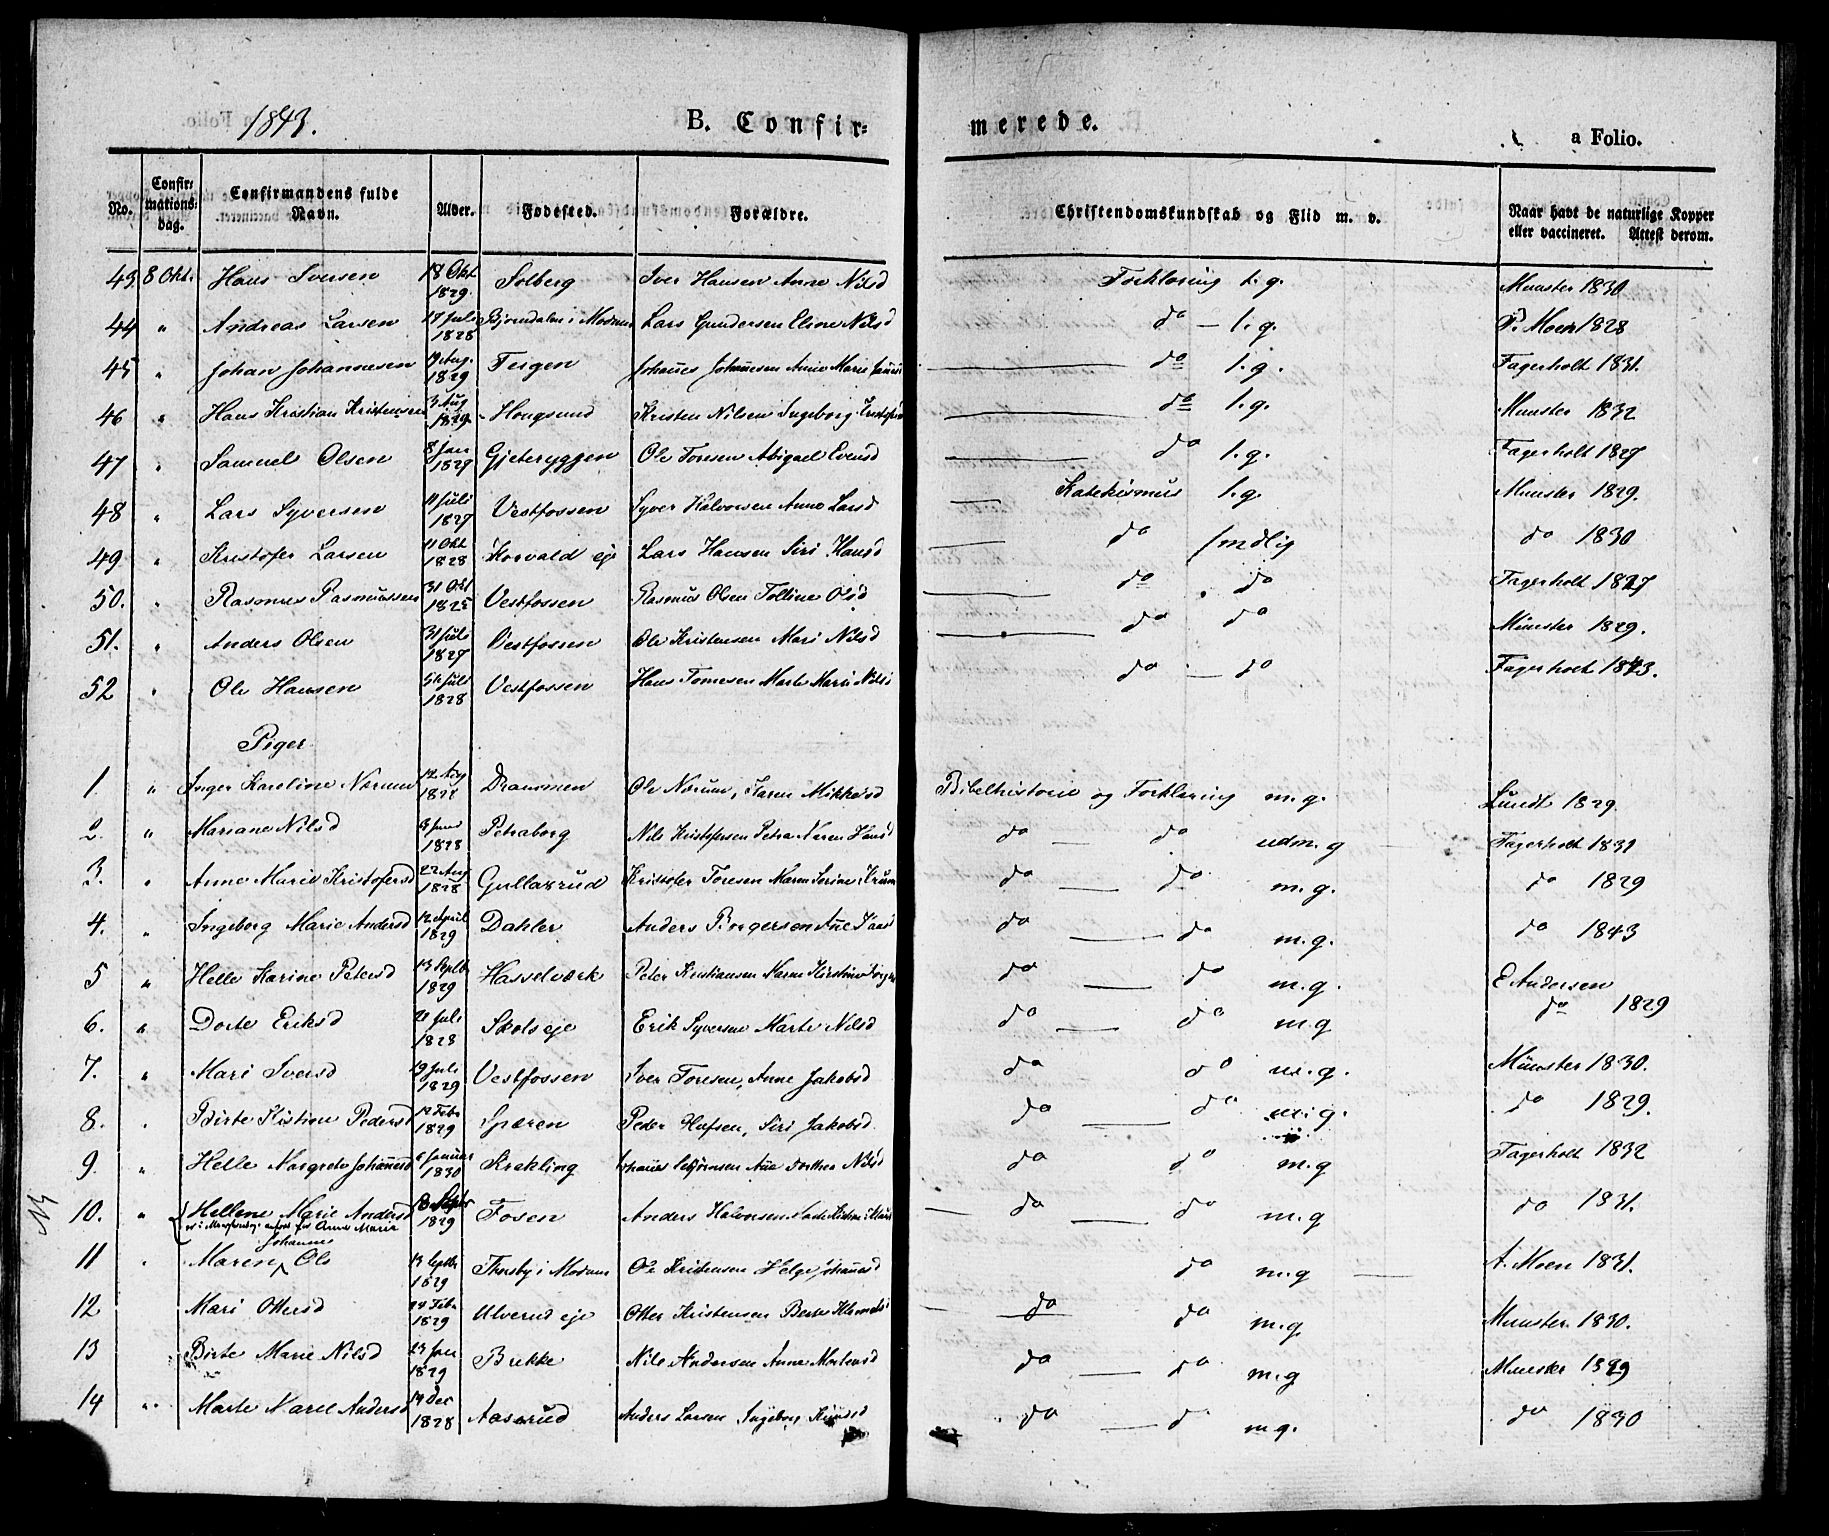 1843.
B. Confir=
merede.
a Folio.
No. Confirmationsdag. Confirmandens fulde Navn. Alder. Fødested. Forældre. Christendomskundskab og Flid m. v. Naar havt de naturlige Kopper eller vaccineret. Attest derom.
43 8 Okt. Hans Iversen 18 Okt 1829 Solberg Iver Hansen Anne Nilsd Forklaring t. g. Munster 1830
44 " Andreas Larsen 17 Juli 1828 Bjørndalen i Modum Lars Gundersen Eline Nilsd do — t. g. P. Moen 1828
45 " Johan Johannesen 19 Aug. 1829 Teigen Johañes Johañesen Anne Marie do t. g. Fagerholt 1831.
46 " Hans Kristian Kristensen 3 Aug 1829 Hougsund Kristen Nilsen Ingeborg do t. g. Munster 1832
47 " Samuel Olsen 8 Jan 1829 Gjeteryggen Ole Toresen Abigael Evensd do t. g. Fagerholt 1827
48 " Lars Syversen 11 Juli 1827 Vestfossen Syver Halvorsen Anne Larsd Katekismus t. g. Munster 1829.
49 " Kristofer Larsen 11 Okt 1828 Korvald eje Lars Hansen Siri Hansd do do 1830
50. " Rasmus Rasmussen 31 Okt 1825 Vestfossen Rasmus Olsen Olsd do do Fagerholt 1827
51. " Anders Olsen 31 Juli 1827 Vestfossen Ole Kristensen Mari Nilsd do do Münster 1829.
52 " Ole Hansen Juli 1828 Vestfossen Hans Tomesen Marte Marie Nilsd do — do Fagerholt 1843.
Piger
1. " Inger Karoline Nørum 12 Aug Drammen Ole Nørum, Karen Mikkelsd Bibelhistorie og Forklaring m. g. Lundt 1829.
2. " Mariane Nilsd 1828 Petraborg Nils Kristofersen Petra Maren Hansd do — do udm. g Fagerholt 1831
3. " Anne Marie Kristofersd 22 Aug 1828 Gullaxrud Kristofer Toresen Maren Sorine do — do m. g. do 1829
4. " Ingeborg Marie Andersd 12 April 1829 Dahler Anders Borgersen do — do m. g. do 1843
5 " Helle Karine Petersd 13 Septb 1829 Hasselværk Peter Kristiansen Maren Kirstine do — do m. g. E Andersen
6. " Dorte Eriksd Juli 1828 Skols eje Erik Syversen Marte Nilsd do — do m. g do 1829
7. " Mari Iversd 19 Juli 1829 Vestfossen Iver Toresen, Anne Jakobsd do do m. g. Münster 1830.
8. " Birte Kistine Pedersd 12 Feb 1829 Spæren Peder Siri Jakobsd. do — do m. g. do 1829.
9. " Helle Margrete Johañesd 6 Januar 1830 Krekling Johañes Dorthea Nilsd do do m. g Fagerholt 1832
10. " Hellene Marie Andersd 1829 Fosen Anders Halvorsen do — do m. g do 1831.
Anne Maria
Johanne
11 " Maren Ols 13 Septb 1829 Thorsby i Modum Ole Kristensen Helge Johañesd do m. g A. Moen 1831.
12 Mari Ottersd 24 Feb. 1829 Ulverud eje Otter Kristensen Berte do do m. g Munster 1830.
13 Birte Marie Nilsd 23 Jan 1829 Brekke Nils Andersen Anne Mortensd do — do m. g Munster 1829
14 " Marte Marie Andersd 14 Dec 1828 Aaserud Anders Larsen Ingeborg do — do m. g. do 1830